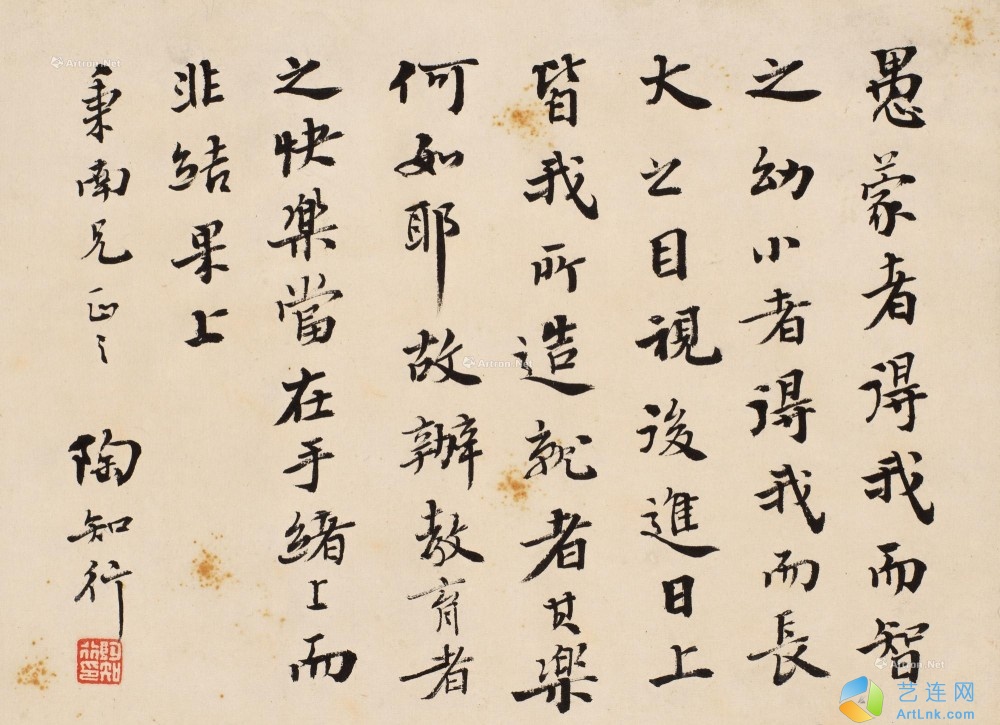 愚蒙者得我而智
之幼小者得我而長
大之目視後進日上
皆我所造就者其樂
何如耶故辦教育者
之快樂當在手緒上而
非結果上
秉南兄正之
陶知行
陶知行印
Artron.Net
Artron.Net
Artron.Net
艺连网
ArtLnk.com